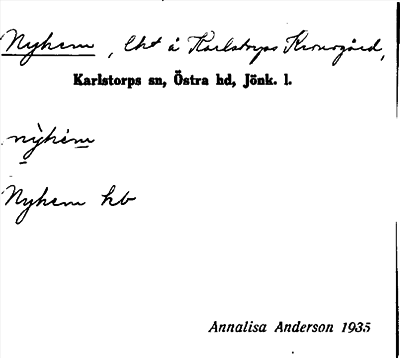 Nyhem, lht å Karlstorps Kronogård,
Karlstorps sn, Östra hd, Jönk. l.
nỳhém
Nyhem hb
Annalisa Anderson 1935